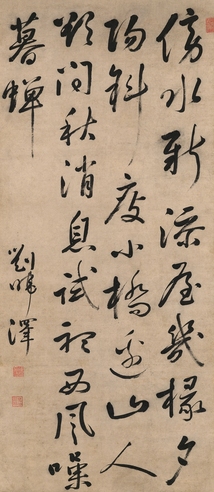 傍水新添屋幾椽夕
陽斜度小橋邊山人
欲問秋消息試聽西風噪
暮蟬
劉暐澤